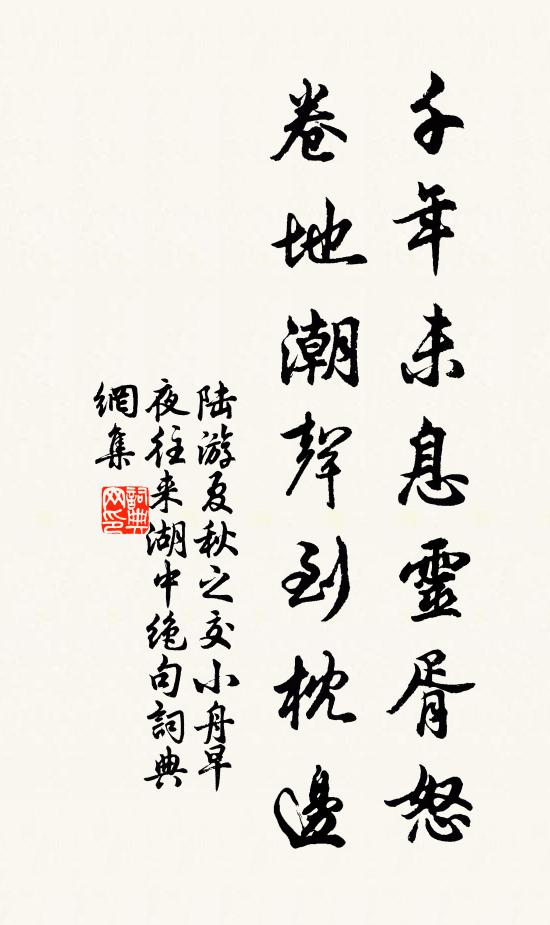 千年未息靈胥怒
卷地潮聲到枕邊
陆游夏秋之交小舟早
夜往来湖中绝句詞典
網集
詞典
网印